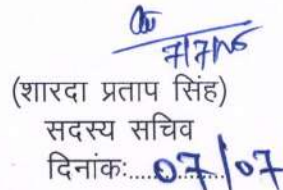 (शारदा प्रताप सिंह)
सदस्य सचिव
दिनांकः.............07/07